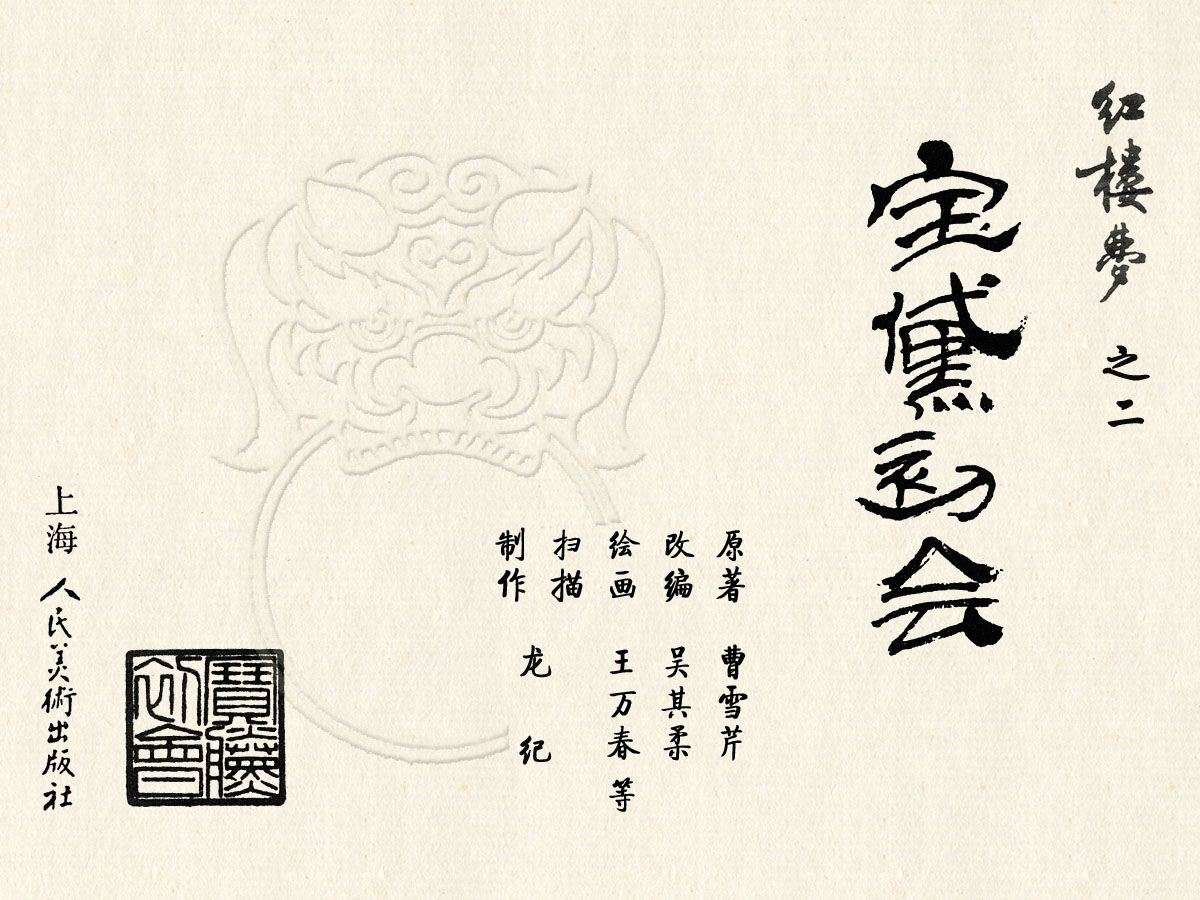 红楼梦 之二
宝黛初会
原著 曹雪芹
改编 吴其柔
绘画 王万春等
扫描
制作 龙纪
上海人民美術出版社
寶黛初會